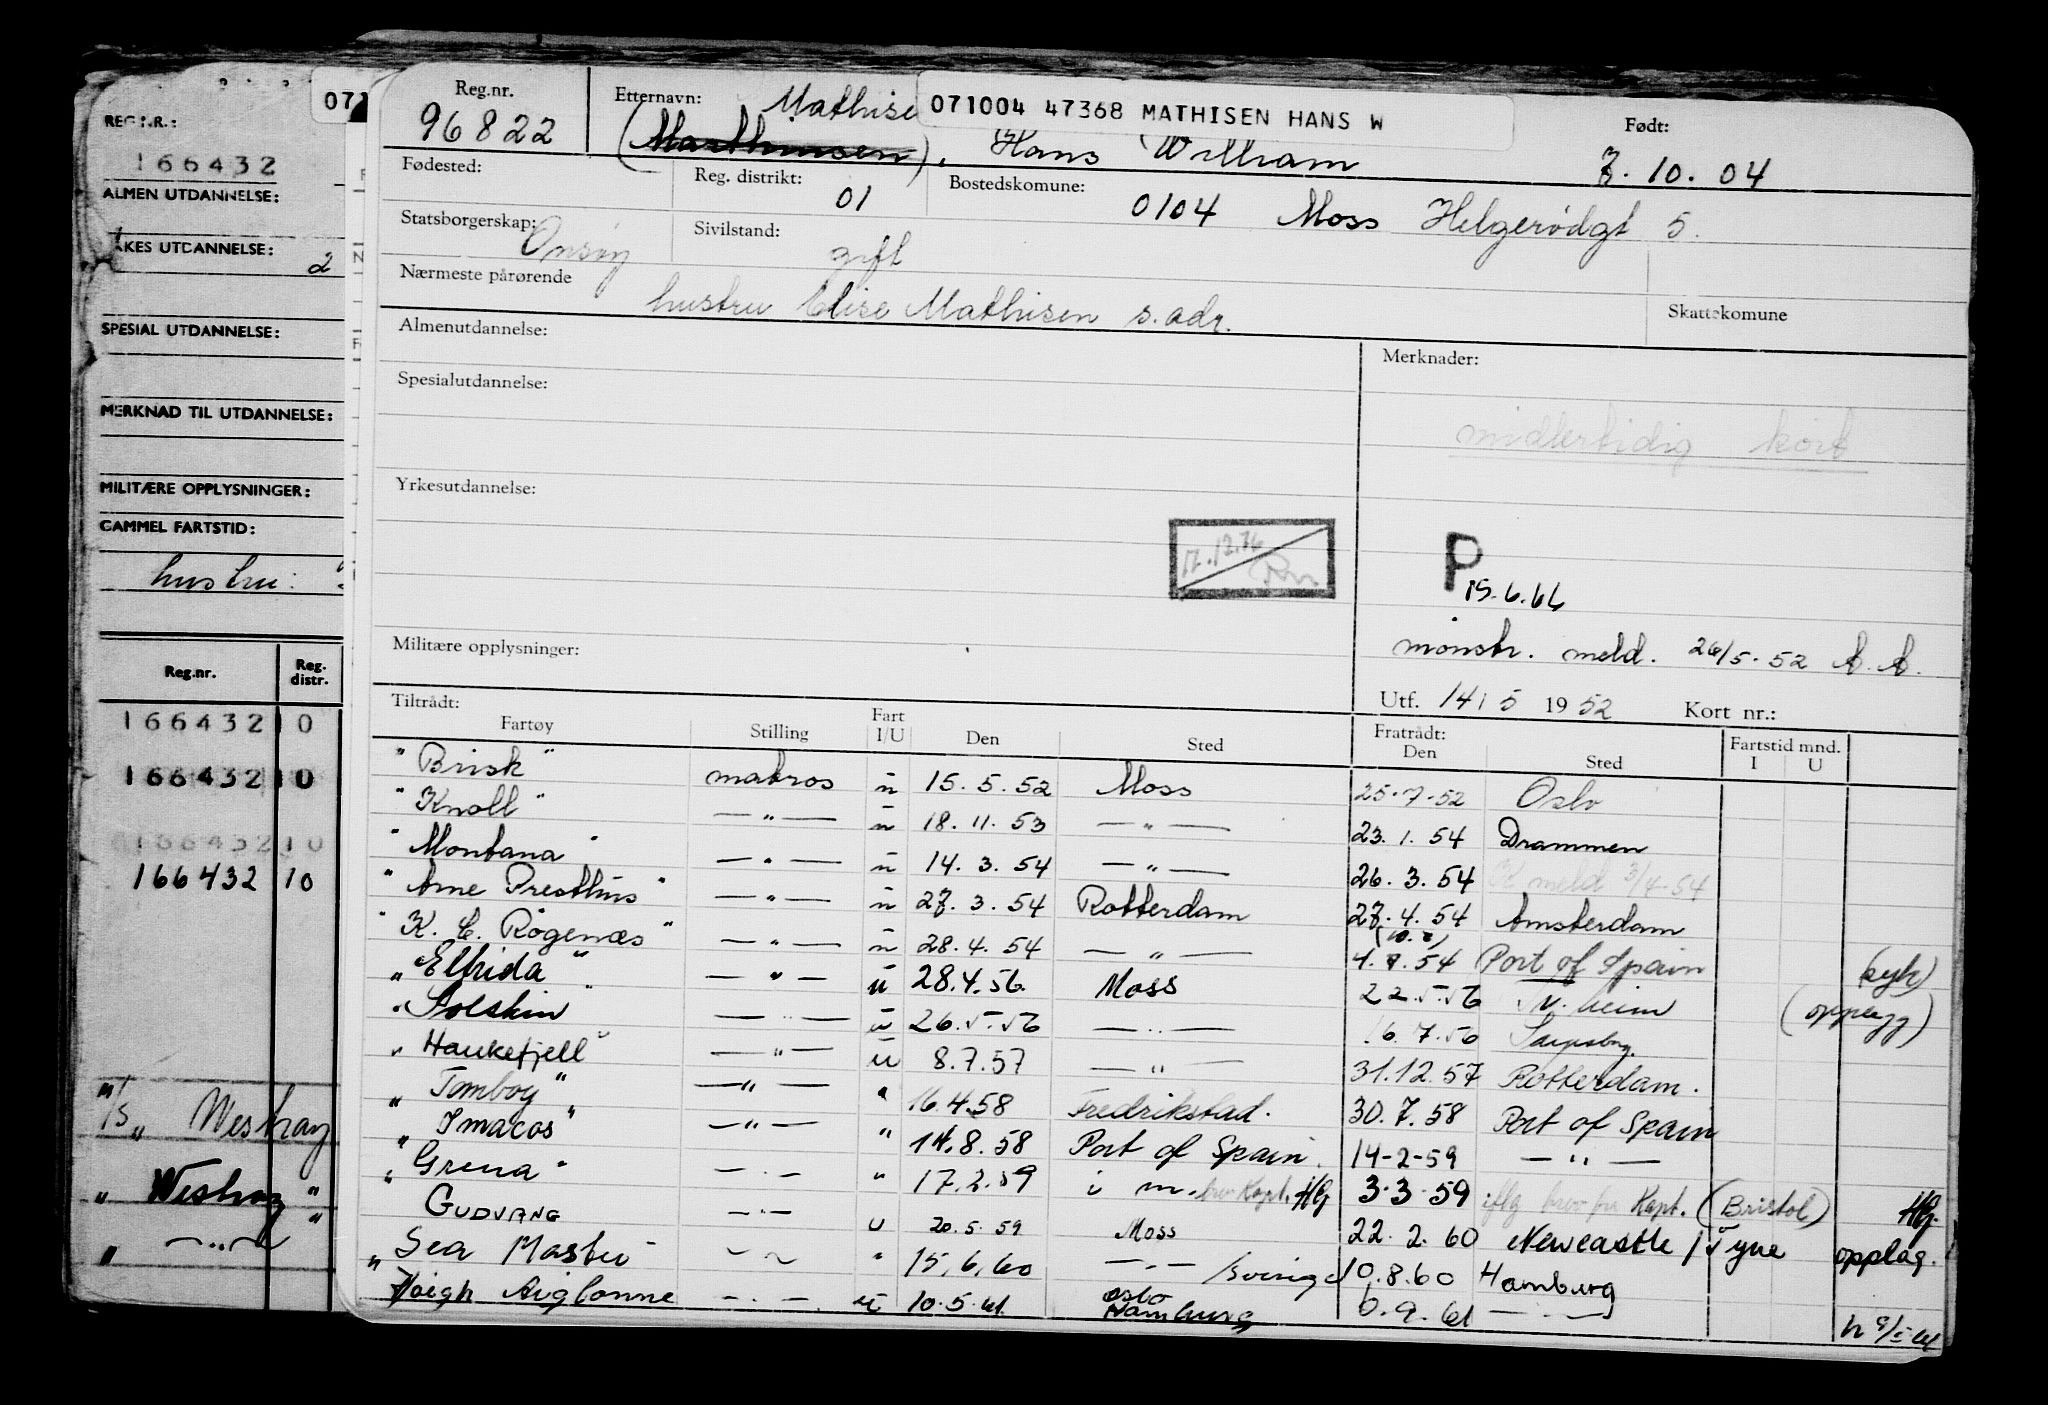 REG.NR.:
166432
ALMEN UTDANNELSE:
YRKES UTDANNELSE: 2
SPESIAL UTDANNELSE:
MERKNAD TIL UTDANNELSE:
MILITÆRE OPPLYSNINGER:
GAMMEL FARTSTID:
hustru:
Reg.nr. Reg. distr.
166432 10
166432 10
166432 10
166432 10
M/S „ Westray
„ Westray "
„ — " — "
071
Reg.nr. Etternavn: Mathise 071004 47368 MATHISEN HANS W Født:
96822 (Marthinsen), Hans William 7.10.04
Fødested: Reg. distrikt: 01 Bostedskomune: 0104 Moss Helgerødgt 5.
Statsborgerskap: Onsøy Sivilstand: gift
Nærmeste pårørende hustru Elise Mathisen s. adr. Skattekomune
Almenutdannelse: Merknader:
Spesialutdannelse: midlertidig kort
Yrkesutdannelse:
17.12.76
P 15.6.66
Militære opplysninger: mønstr. meld. 26/5-52 A. A.
Utf. 14/5 1952 Kort nr.:
Tiltrådt: Fratrådt: Fartstid mnd.
Fartøy Stilling Fart I/U Den Sted Den Sted I U
"Brisk" matros u 15.5.52 Moss 25-7-52 Oslo
"Knoll" — " — u 18.11.53 — " — 23.1.54 Drammen
"Montana" — " — u 14.3.54 — " — 26.3.54 meld 3/4-54
"Arne Presthus" — " — u 27.3.54 Rotterdam 27.4.54 Amsterdam
"K. C. Rogenæs" — " — u 28.4.54 — " — 4.7.54 Port of Spain (syk)
„ Elfrida " — " — u 28.4.56 Moss 22.5.56 (opplegg)
" Solskin " — " — u 26.5.56 — " — 16.7.56 Sarpsborg.
„ Haukefjell " — " — u 8.7.57 — " — 31.12.57 Rotterdam.
„ Tomboy " — " — " 16.4.58 Fredrikstad. 30.7.58 Port of Spain
„ Imacos " — " — " 14.8.58 Port of Spain. 14-2-59 — " —
„ Grena " — " — " 17.2.59 i m. brev Kapt. HG 3.3.59 iflg brev fra Kapt. (Bristol) HG.
GUDVANG — " — u 20.5.59 Moss 22.2.60 Newcastle / Tyne opplag.
„ Sea Master " 15.6.60 — " — / Sverige 10.8.60 Hamburg
Haigh Aiglonne — " — u 10.5.61 Oslo Hamburg 6.9.61 — " —